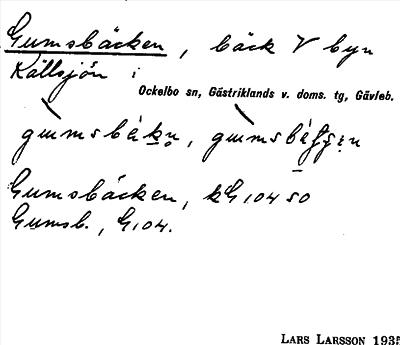 Gumsbäcken, bäck V byn
Källsjön i
Ockelbo sn, Gästriklands v. doms. tg, Gävleb.
Gumsbäcken, kG 104 SO
Gumsb., G 104.
LARS LARSSON 1935